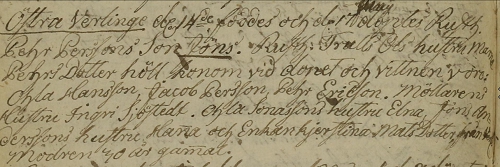 Maij
Östra Verlinge de 14de föddes och d. 17 döptes Ryttn
Pehr Perssons Son Pöns. Ryttn: Trulls Ols hustru
Pehrs Dotter höll honom vid donet och vittnen voro:
Ohla Hansson, Jacob Persson, Pehr Ericson. Mölarens
Hustru Ingri Sjöstedt. Ohla Jonassons hustru Elna, Jöns An
derssons hustru, Karna och Enkan Kjerstina Mats Dotter,
Modren 40 år gamal.